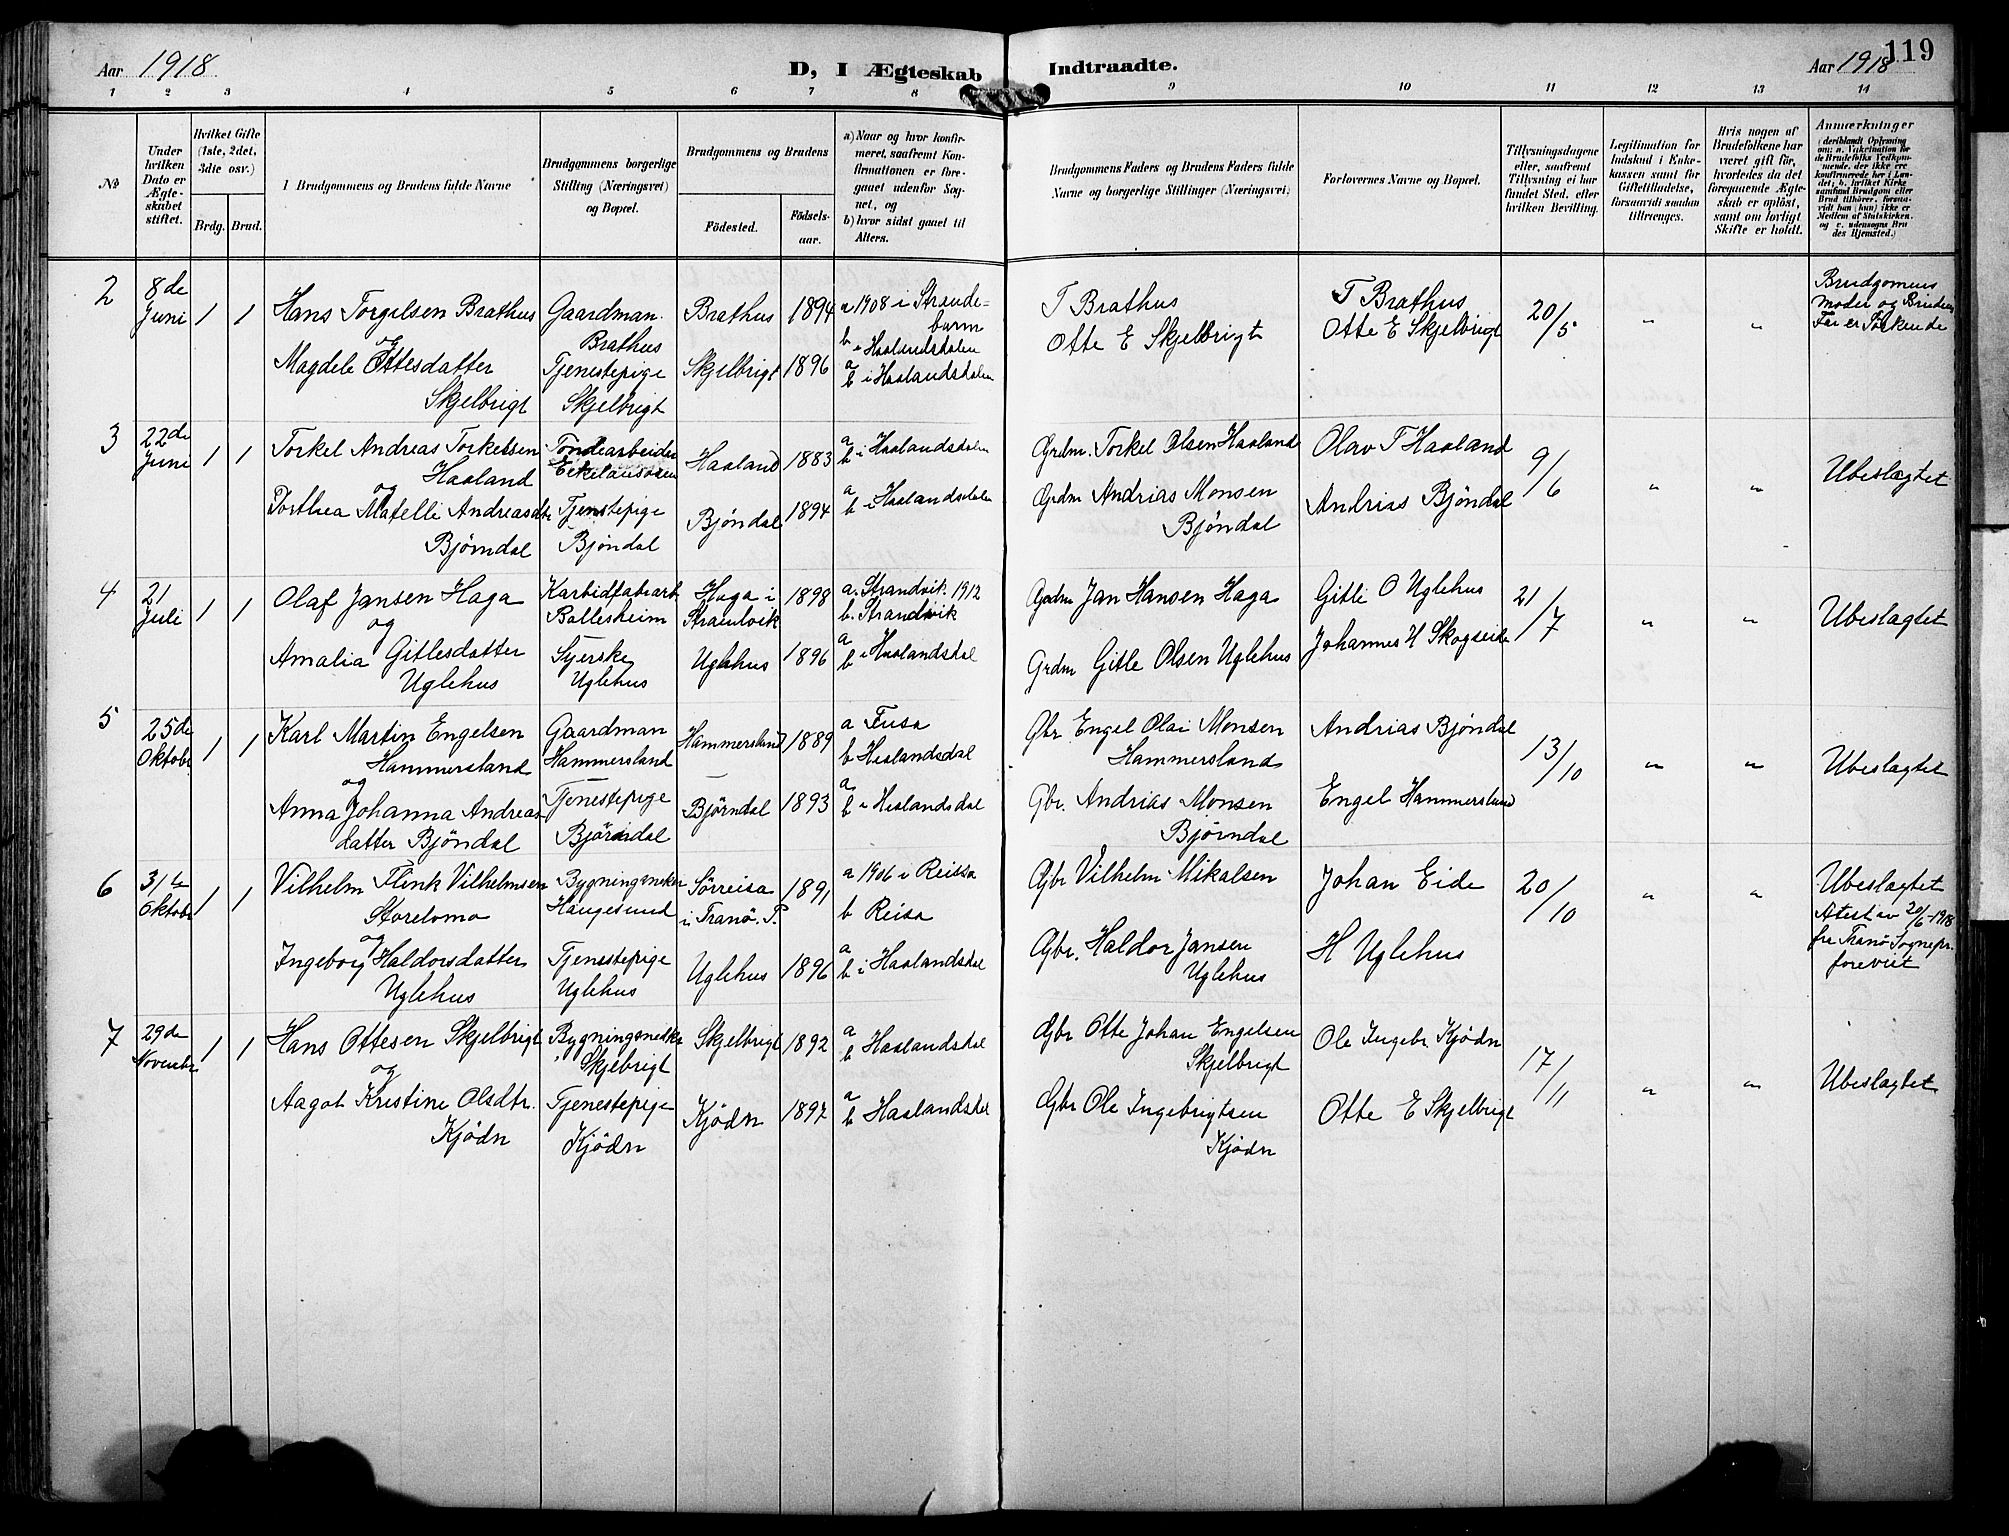 Aar 1918
D, I Ægteskab Indtraadte.
Aar 1918
119
1 2 3 4 5 6 7 8 9 10 11 12 13 14
No
Under hvilken Dato er Ægteskabet stiftet.
Hvilket Gifte (1ste, 2det, 3die osv.)
Brdg. Brud.
I Brudgommens og Brudens fulde Navne
Brudgommens borgerlige Stilling (Næringsvei) og Bopæl.
Brudgommens og Brudens
Födested. Födsels-aar.
a) Naar og hvor konfirmeret, saafremt Konfirmationen er foregaaet udenfor Sognet, og
b) hvor sidst gaaet til Alters.
Brudgommens Faders og Brudens Faders fulde Navne og borgerlige Stillinger (Næringsvei)
Forlovernes Navne og Bopæl.
Tillysningsdagene eller, saafremt Tillysning ei har fundet Sted, efter hvilken Bevilling.
Legitimation for Indskud i Enkekassen samt for Giftetilladelse, forsaavidt saadan tiltrænges.
Hvis nogen af Brudefolkene har været gift för, hvorledes da det foregaaende Ægteskab er oplöst, samt om lovligt Skifte er holdt.
Anmærkninger
2 8de Juni 1 1
Hans Torgilsen Brathus
og
Magdele Ottesdatter
Skjelbrigt
Gaardman.
Brathus
Tjenestepige
Skjelbrigt
Brathus 1894
Skjelbrigt 1896
a 1908 i Strandebarm
b i Haalandsdalen
a
b i Haalandsdalen
T Brathus
Otte E Skjelbrigt
T Brathus
Otte E Skjelbrigt
20/5 " "
Brudgomens
Moder og Brudens
Far er
3 22de Juni 1 1
Torkel Andreas Torkelsen
Haaland
og
Matelli Andreasdtr
Bjørndal
Tøndearbeider
Tjenstepige
Bjöndal
Haaland 1883
Bjöndal 1894
a
b i Haalandsdalen
a
b i Haalandsdalen
Grdm. Torkel Olsen Haaland
Grdm Andrias Monsen
Bjöndal
Olav T Haaland
Andrias Bjöndal
9/6 " "
Ubeslægtet
4 21 Juli 1 1
Olaf Jansen Haga
og
Amalia Gitlesdatter
Uglehus
Karbidfabarb.
Syerske
Uglehus
Haga i
Strandvik 1898
Uglehus 1896
a. Strandvik. 1912
b. Strandvik
a
b i Haalandsdal
Grdm Jan Hansen Haga
Grdm Gitle Olsen Uglehus
Gitle O Uglehus
Johannes H Skogseide
21/7 " "
Ubeslagtet
5 25de Oktobr 1 1
Karl Martin Engelsen
Hammersland
og
Anna Johanna Andreas-
datter Bjöndal
Gaardman
Hammersland
Tjenestepige
Björndal
Hammersland 1889
Björndal 1893
a Fusa
b Haalandsdal
a
b i Haalandsdal
Gbr Engel Olai Monsen
Hammersland
Gbr. Andrias Monsen
Bjørndal
Andrias Bjöndal
Engel Hammersland
13/10 " "
Ubeslagtet
6 31te Oktobr 1 1
Vilhelm Flink Vilhelmsen
Storelomo
og
Ingeborg Haldorsdatter
Uglehus
Bygningsneker
Haugesund
Tjenestepige
Uglehus
Sørreisa
i Tranö. P. 1891
Uglehus 1896
a 1906 i Reissa
b Reisa
a
b i Haalandsdal
Gbr Vilhelm Mikalsen
Gbr. Haldor Jansen
Uglehus
Johan Eide
H Uglehus
20/10 " "
Ubeslagtet
Atest av 20/6-1918
fra Tranö Sognepr.
foreviist
7 29de Novembr 1 1
Hans Ottesen Skjelbrigt
og
Aagot Kristine Olsdtr.
Kjödn
Bygningsnedker
Skjelbrigt
Tjenestepige
Kjödn
Skjelbrigt 1892
Kjödn 1897
a
b Haalandsdal
a
b Haalandsdal
Gbr Otte Johan Engelsen
Skjelbrigt
Gbr Ole Ingebrigtsen
Kjödn
Ole Ingebr. Kjödn
Otte E Skjelbrigt
17/11 " "
Ubeslagtet